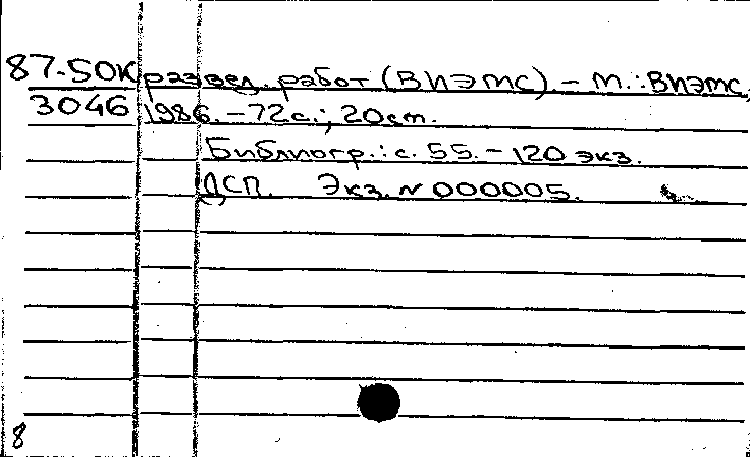 87-50К развед. работ (ВИЭМС) – М.: ВИЭМС,
3046 1986. – 72с.; 20см.
Библиогр.: с. 55. – 120 экз.
ДСП. Экз. N 000005.
8